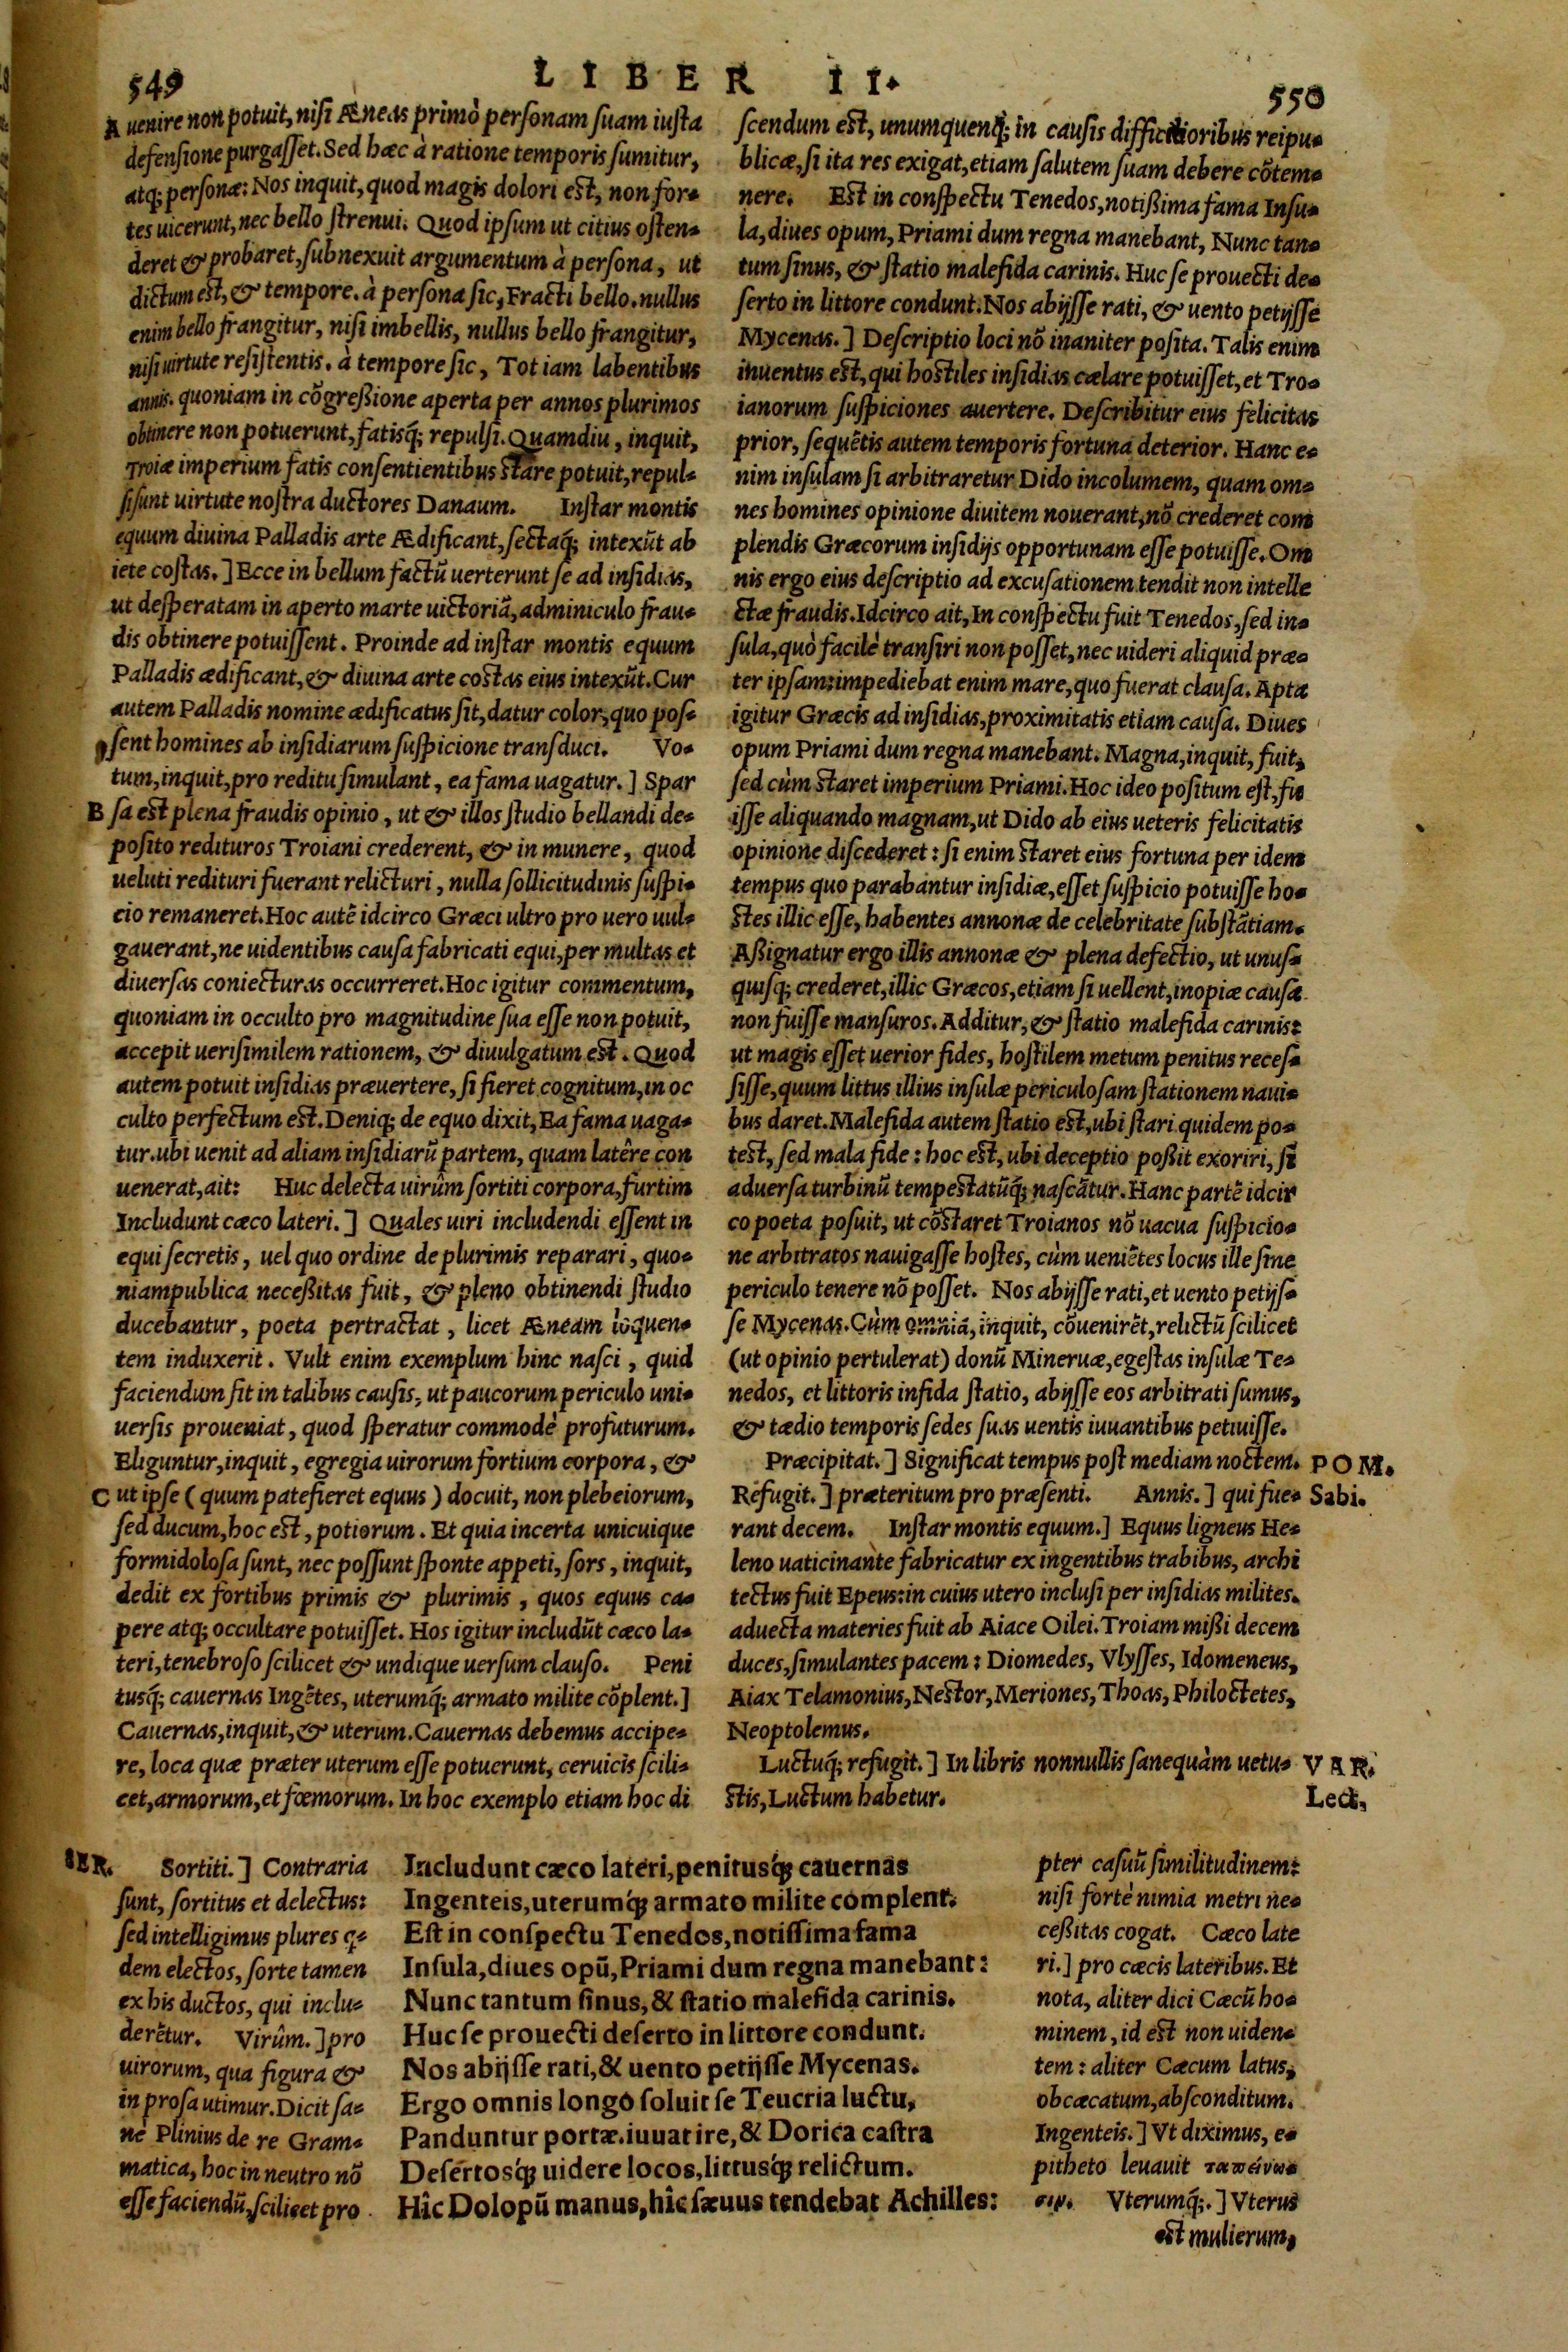 549
LIBER II.
550
A uenire non potuit, nisi Æneas primò personam suam iusta
defensione purgasset. Sed hæc à ratione temporis sumitur,
atq; personæ: Nos inquit, quod magis dolori est, non for-
tes uicerunt, nec bello strenui. Quod ipsum ut citius osten-
deret & probaret, subnexuit argumentum à persona, ut
dictum est, & tempore. à persona sic, Fracti bello. nullus
enim bello frangitur, nisi imbellis, nullus bello frangitur,
nisi uirtute resistentis. à tempore sic, Tot iam labentibus
annis. quoniam in cōgreßione aperta per annos plurimos
obtinere non potuerunt, fatisq́; repulsi. Quamdiu, inquit,
Troiæ imperium fatis consentientibus stare potuit, repul-
si sunt uirtute nostra ductores Danaum. Instar montis
equum diuina Palladis arte Ædificant, sectaq́; intexūt ab
iete costas.] Ecce in bellum factū uerterunt se ad insidias,
ut desperatam in aperto marte uictoriā, adminiculo frau-
dis obtinere potuissent. Proinde ad instar montis equum
Palladis ædificant, & diuina arte costas eius intexūt. Cur
autem Palladis nomine ædificatus sit, datur color, quo pos-
sent homines ab insidiarum suspicione transduci. Vo-
tum, inquit, pro reditu simulant, ea fama uagatur.] Spar
B sa est plena fraudis opinio, ut & illos studio bellandi de-
posito redituros Troiani crederent, & in munere, quod
ueluti redituri fuerant relicturi, nulla sollicitudinis suspi-
cio remaneret. Hoc autē idcirco Græci ultro pro uero uul-
gauerant, ne uidentibus causa fabricati equi, per multas et
diuersas coniecturas occurreret. Hoc igitur commentum,
quoniam in occulto pro magnitudine sua esse non potuit,
accepit uerisimilem rationem, & diuulgatum est. Quod
autem potuit insidias præuertere, si fieret cognitum, in oc
culto perfectum est. Deniq; de equo dixit, Ea fama uaga-
tur. ubi uenit ad aliam insidiarū partem, quam latêre con
uenerat, ait: Huc delecta uirûm sortiti corpora, furtim
Includunt cæco lateri.] Quales uiri includendi essent in
equi secretis, uel quo ordine de plurimis reparari, quo-
niam publica neceßitas fuit, & pleno obtinendi studio
ducebantur, poeta pertractat, licet Æneam loquen-
tem induxerit. Vult enim exemplum hinc nasci, quid
faciendum sit in talibus causis, ut paucorum periculo uni-
uersis proueniat, quod speratur commodè profuturum.
Eliguntur, inquit, egregia uirorum fortium corpora, &
C ut ipse (quum patefieret equus) docuit, non plebeiorum,
sed ducum, hoc est, potiorum. Et quia incerta unicuique
formidolosa sunt, nec possunt sponte appeti, sors, inquit,
dedit ex fortibus primis & plurimis, quos equus ca-
pere atq; occultare potuisset. Hos igitur includūt cæco la-
teri, tenebroso scilicet & undique uersum clauso. Peni
tusq́; cauernas Ingētes, uterumq́; armato milite cōplent.]
Cauernas, inquit, & uterum. Cauernas debemus accipe-
re, loca quæ præter uterum esse potuerunt, ceruicis scili-
cet, armorum, et fœmorum. In hoc exemplo etiam hoc di
scendum est, unumquenq́; in causis difficilioribus reipu-
blicæ, si ita res exigat, etiam salutem suam debere cōtem-
nere. Est in conspectu Tenedos, notißima fama Insu-
la, diues opum, Priami dum regna manebant, Nunc tan-
tum sinus, & statio malefida carinis. Huc se prouecti de-
serto in littore condunt. Nos abijsse rati, & uento petijsse
Mycenas.] Descriptio loci nō inaniter posita. Talis enim
inuentus est, qui hostiles insidias cælare potuisset, et Tro-
ianorum suspiciones auertere. Describitur eius felicitas
prior, sequētis autem temporis fortuna deterior. Hanc e-
nim insulam si arbitraretur Dido incolumem, quam om-
nes homines opinione diuitem nouerant, nō crederet com
plendis Græcorum insidijs opportunam esse potuisse. Om
nis ergo eius descriptio ad excusationem tendit non intelle
ctæ fraudis. Idcirco ait, In conspectu fuit Tenedos, sed in-
sula, quò facilè transiri non posset, nec uideri aliquid præ-
ter ipsam: impediebat enim mare, quo fuerat clausa. Apta
igitur Græcis ad insidias, proximitatis etiam causa. Diues
opum Priami dum regna manebant. Magna, inquit, fuit,
sed cùm staret imperium Priami. Hoc ideo positum est, fu
isse aliquando magnam, ut Dido ab eius ueteris felicitatis
opinione discederet: si enim staret eius fortuna per idem
tempus quo parabantur insidiæ, esset suspicio potuisse ho-
stes illic esse, habentes annonæ de celebritate substātiam.
Aßignatur ergo illis annonæ & plena defectio, ut unus-
quisq; crederet, illic Græcos, etiam si uellent, inopiæ causa
non fuisse mansuros. Additur, & statio malefida carinis:
ut magis esset uerior fides, hostilem metum penitus reces-
sisse, quum littus illius insulæ periculosam stationem naui-
bus daret. Malefida autem statio est, ubi stari quidem po-
test, sed mala fide: hoc est, ubi deceptio poßit exoriri, si
aduersa turbinū tempestatūq́; nascātur. Hanc partē idcir
co poeta posuit, ut cōstaret Troianos nō uacua suspicio-
ne arbitratos nauigasse hostes, cùm ueniētes locus ille sine
periculo tenere nō posset. Nos abijsse rati, et uento petijs-
se Mycenas. Cùm omnia, inquit, cōuenirēt, relictū scilicet
(ut opinio pertulerat) donū Mineruæ, egestas insulæ Te-
nedos, et littoris infida statio, abijsse eos arbitrati sumus,
& tædio temporis sedes suas uentis iuuantibus petiuisse.
Præcipitat.] Significat tempus post mediam noctem. POM.
Refugit.] præteritum pro præsenti. Annis.] qui fue- Sabi.
rant decem. Instar montis equum.] Equus ligneus He-
leno uaticinante fabricatur ex ingentibus trabibus, archi
tectus fuit Epeus: in cuius utero inclusi per insidias milites.
aduecta materies fuit ab Aiace Oilei. Troiam mißi decem
duces, simulantes pacem: Diomedes, Vlysses, Idomeneus,
Aiax Telamonius, Nestor, Meriones, Thoas, Philoctetes,
Neoptolemus.
Luctuq́; refugit.] In libris nonnullis sanequàm uetu- VAR.
stis, Luctum habetur. Lect.
SER. Sortiti.] Contraria
sunt, sortitus et delectus:
sed intelligimus plures q-
dem electos, sorte tamen
ex his ductos, qui inclu-
derētur. Virûm.] pro
uirorum, qua figura &
in prosa utimur. Dicit sa-
ne Plinius de re Gram-
matica, hoc in neutro nō
esse faciendū, scilicet pro
Includunt cæco lateri, penitusq́; cauernas
Ingenteis, uterumq́; armato milite complent.
Est in conspectu Tenedos, notissima fama
Insula, diues opū, Priami dum regna manebant:
Nunc tantum sinus, & statio malefida carinis.
Huc se prouecti deserto in littore condunt.
Nos abijsse rati, & uento petijsse Mycenas.
Ergo omnis longo soluit se Teucria luctu,
Panduntur portæ. iuuat ire, & Dorica castra
Desertosq́; uidere locos, littusq́; relictum.
Hîc Dolopū manus, hîc sæuus tendebat Achilles:
pter casuū similitudinem:
nisi fortè nimia metri ne-
ceßitas cogat. Cæco late
ri.] pro cæcis lateribus. Et
nota, aliter dici Cæcū ho-
minem, id est non uiden-
tem: aliter Cæcum latus,
obcæcatum, absconditum.
Ingenteis.] Vt diximus, e-
pitheto leuauit ταπείνω-
σιν. Vterumq́;.] Vterus
est mulierum,